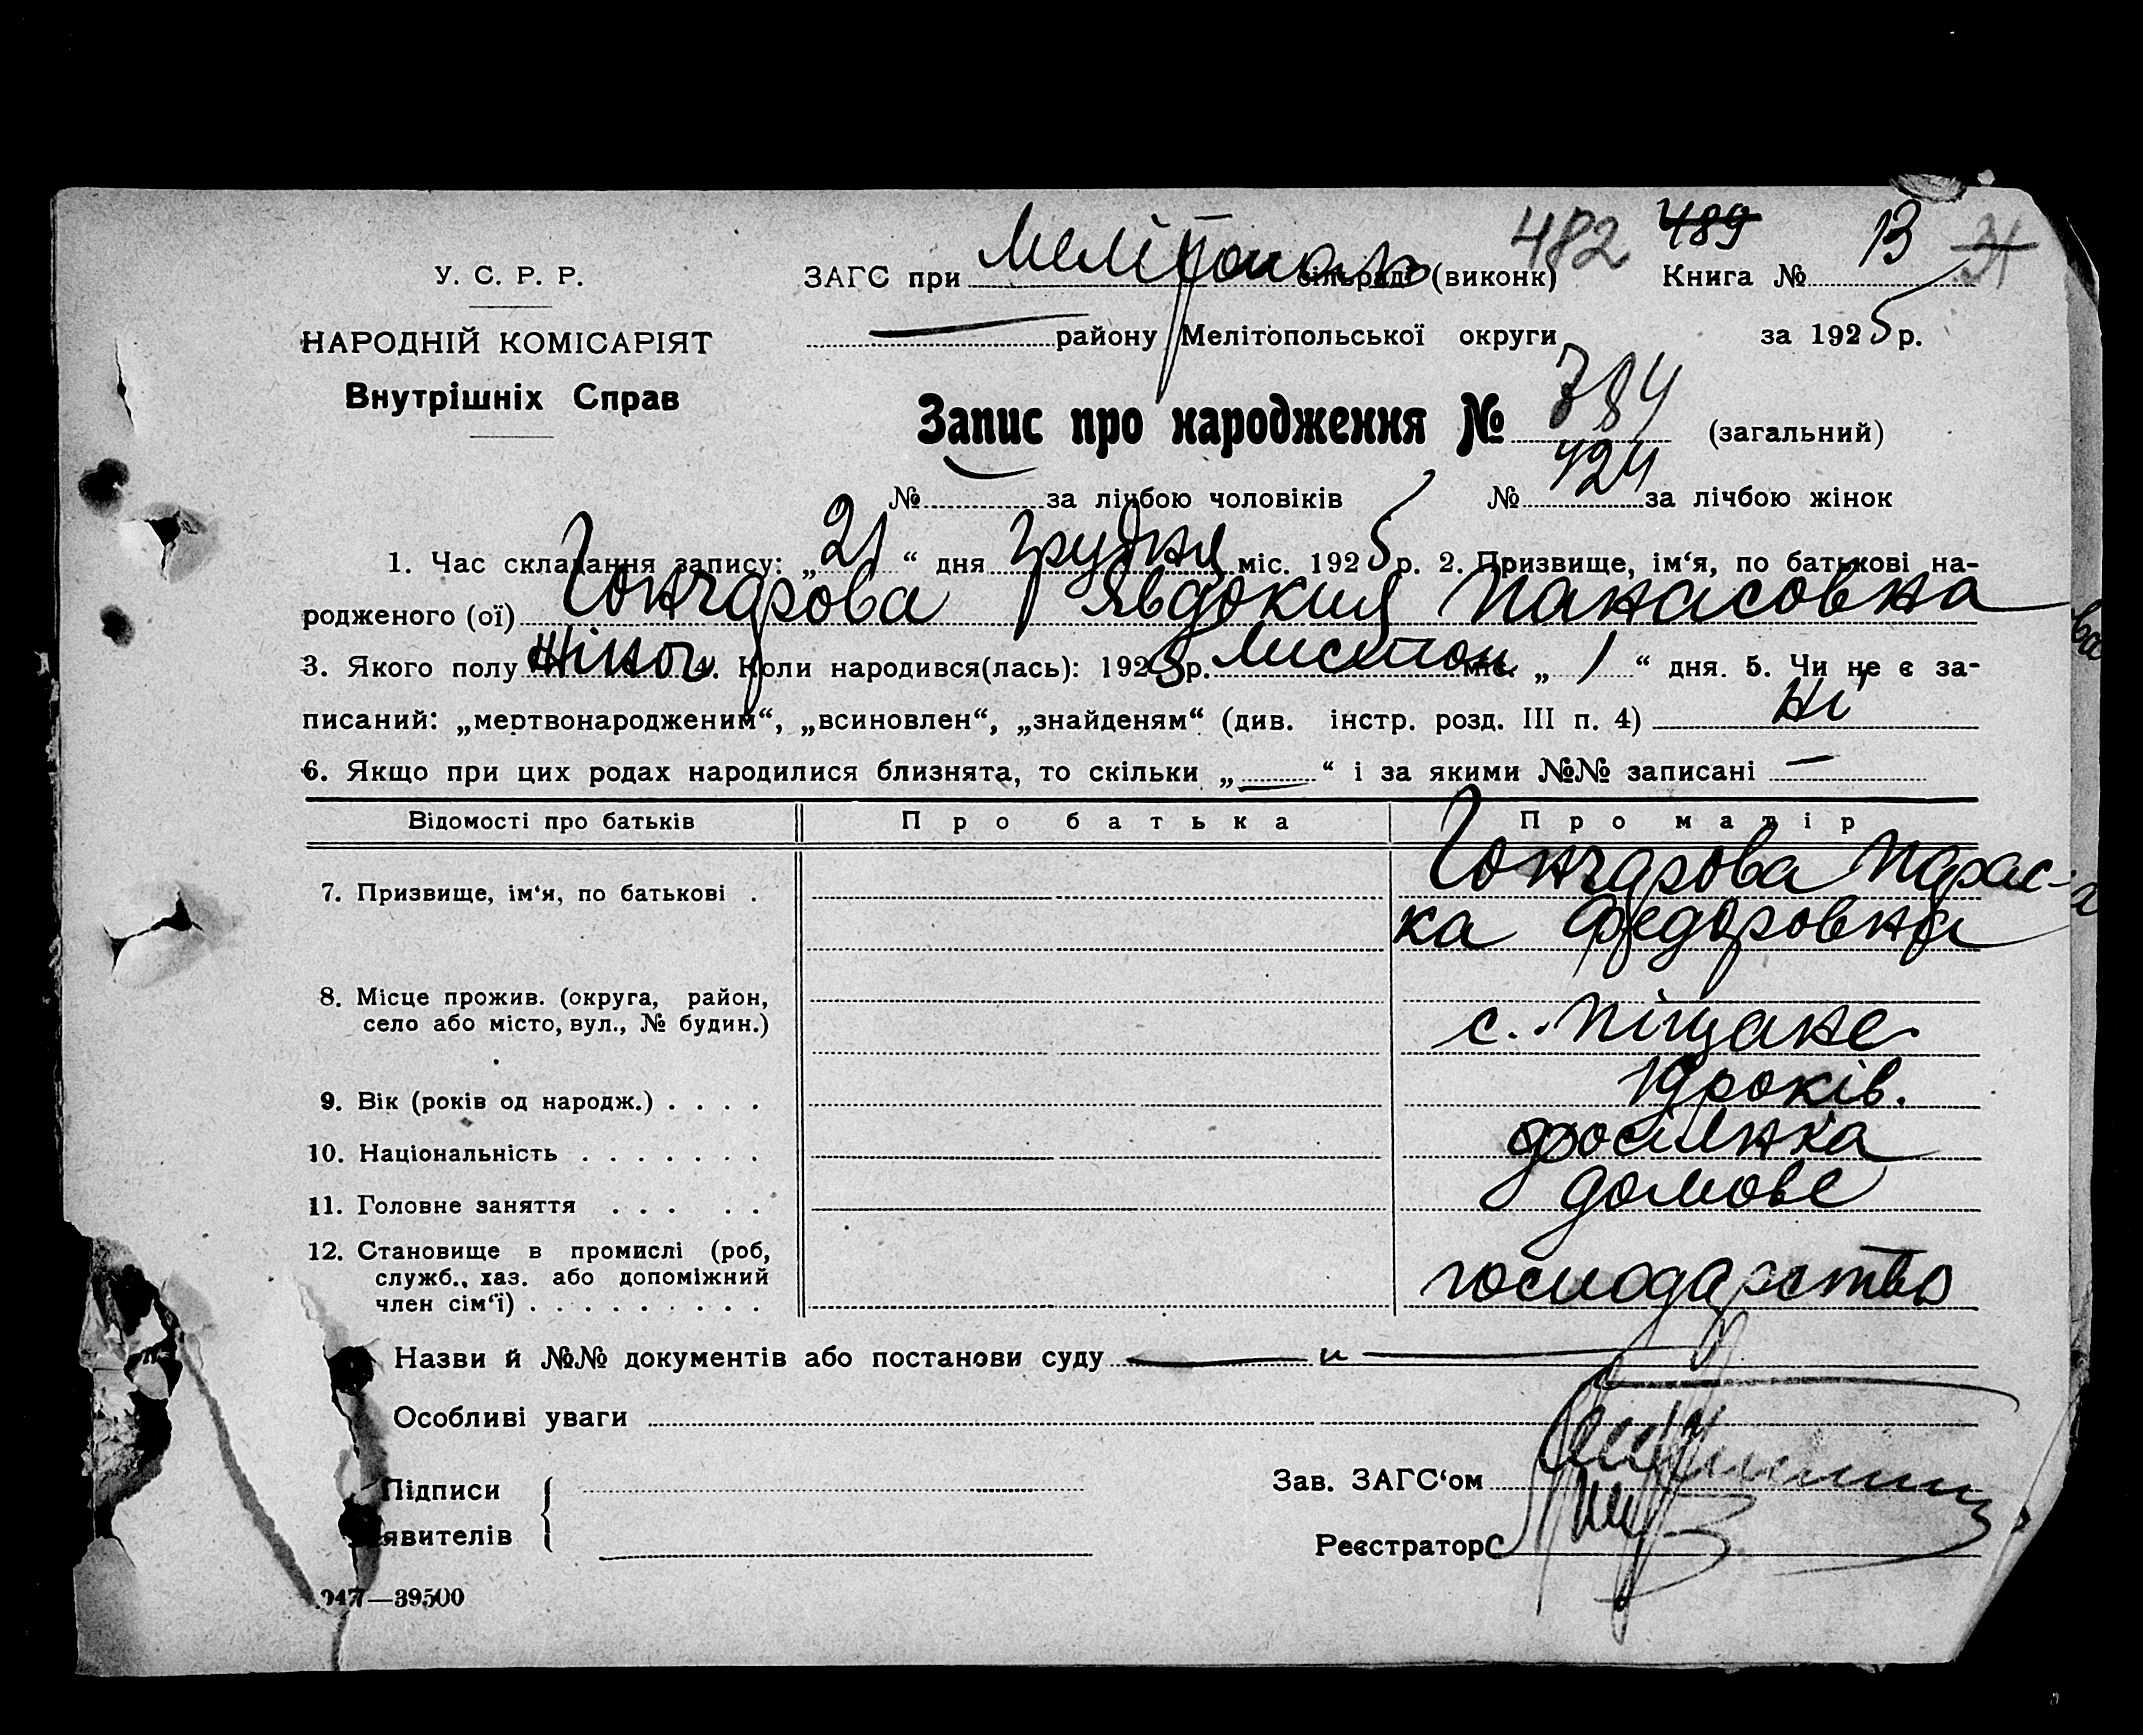 482 489 13 31
У. С. Р. Р. ЗАГС при Мелітополь сільраді (виконк) Книга № 
НАРОДНІЙ КОМІСАРІЯТ району Мелітопольської округи за 1925 р.
Внутрішніх Справ
Запис про народження № 784 (загальний)
№ за лічбою чоловіків № 424 за лічбою жінок
1. Час складання запису: „21“ дня грудня міс. 1925 р. 2. Призвище, ім‘я, по батькові на-
родженого (ої) Гончарова Явдокия Панасовна
3. Якого полу жіноч. 4. Коли народився(лась): 1925 р. Листоп міс. „1“ дня. 5. Чи не є за-
писаний: „мертвонародженим“, „всиновлен“, „знайденям“ (див. інстр. розд. III п. 4) Ні
6. Якщо при цих родах народилися близнята, то скільки „—“ і за якими №№ записані —
Відомості про батьків Про батька Про матір
7. Призвище, ім‘я, по батькові . Гончарова Парас-
ка Федоровна
8. Місце прожив. (округа, район,
село або місто, вул., № будин.) с. Піщане
9. Вік (років од народж.) . . . . 19 років.
10. Національність . . . . . . . росіянка
11. Головне заняття . . . . . домове
12. Становище в промислі (роб,
служб., хаз. або допоміжний господарство
член сім‘ї) . . . . . . . . .
Назви й №№ документів або постанови суду — „ —
Особливі уваги
Підписи Зав. ЗАГС‘ом
явителів Реєстратор
947—39500